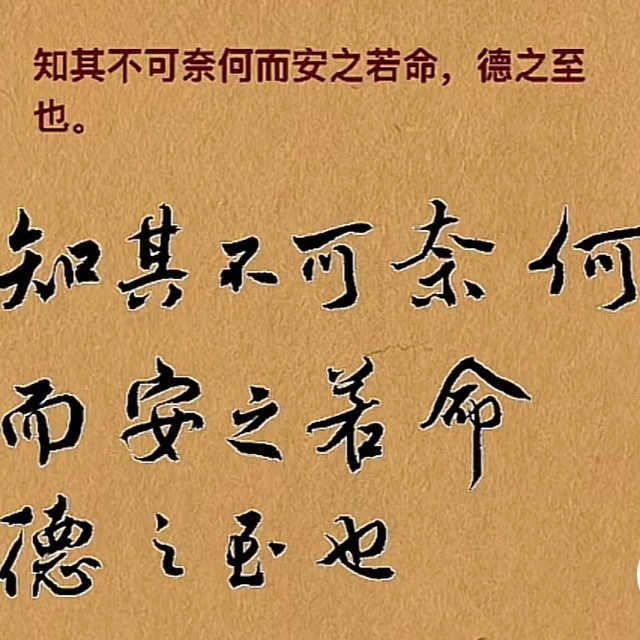 知其不可奈何而安之若命，德之至
也。
知其不可奈何
而安之若命
德之至也